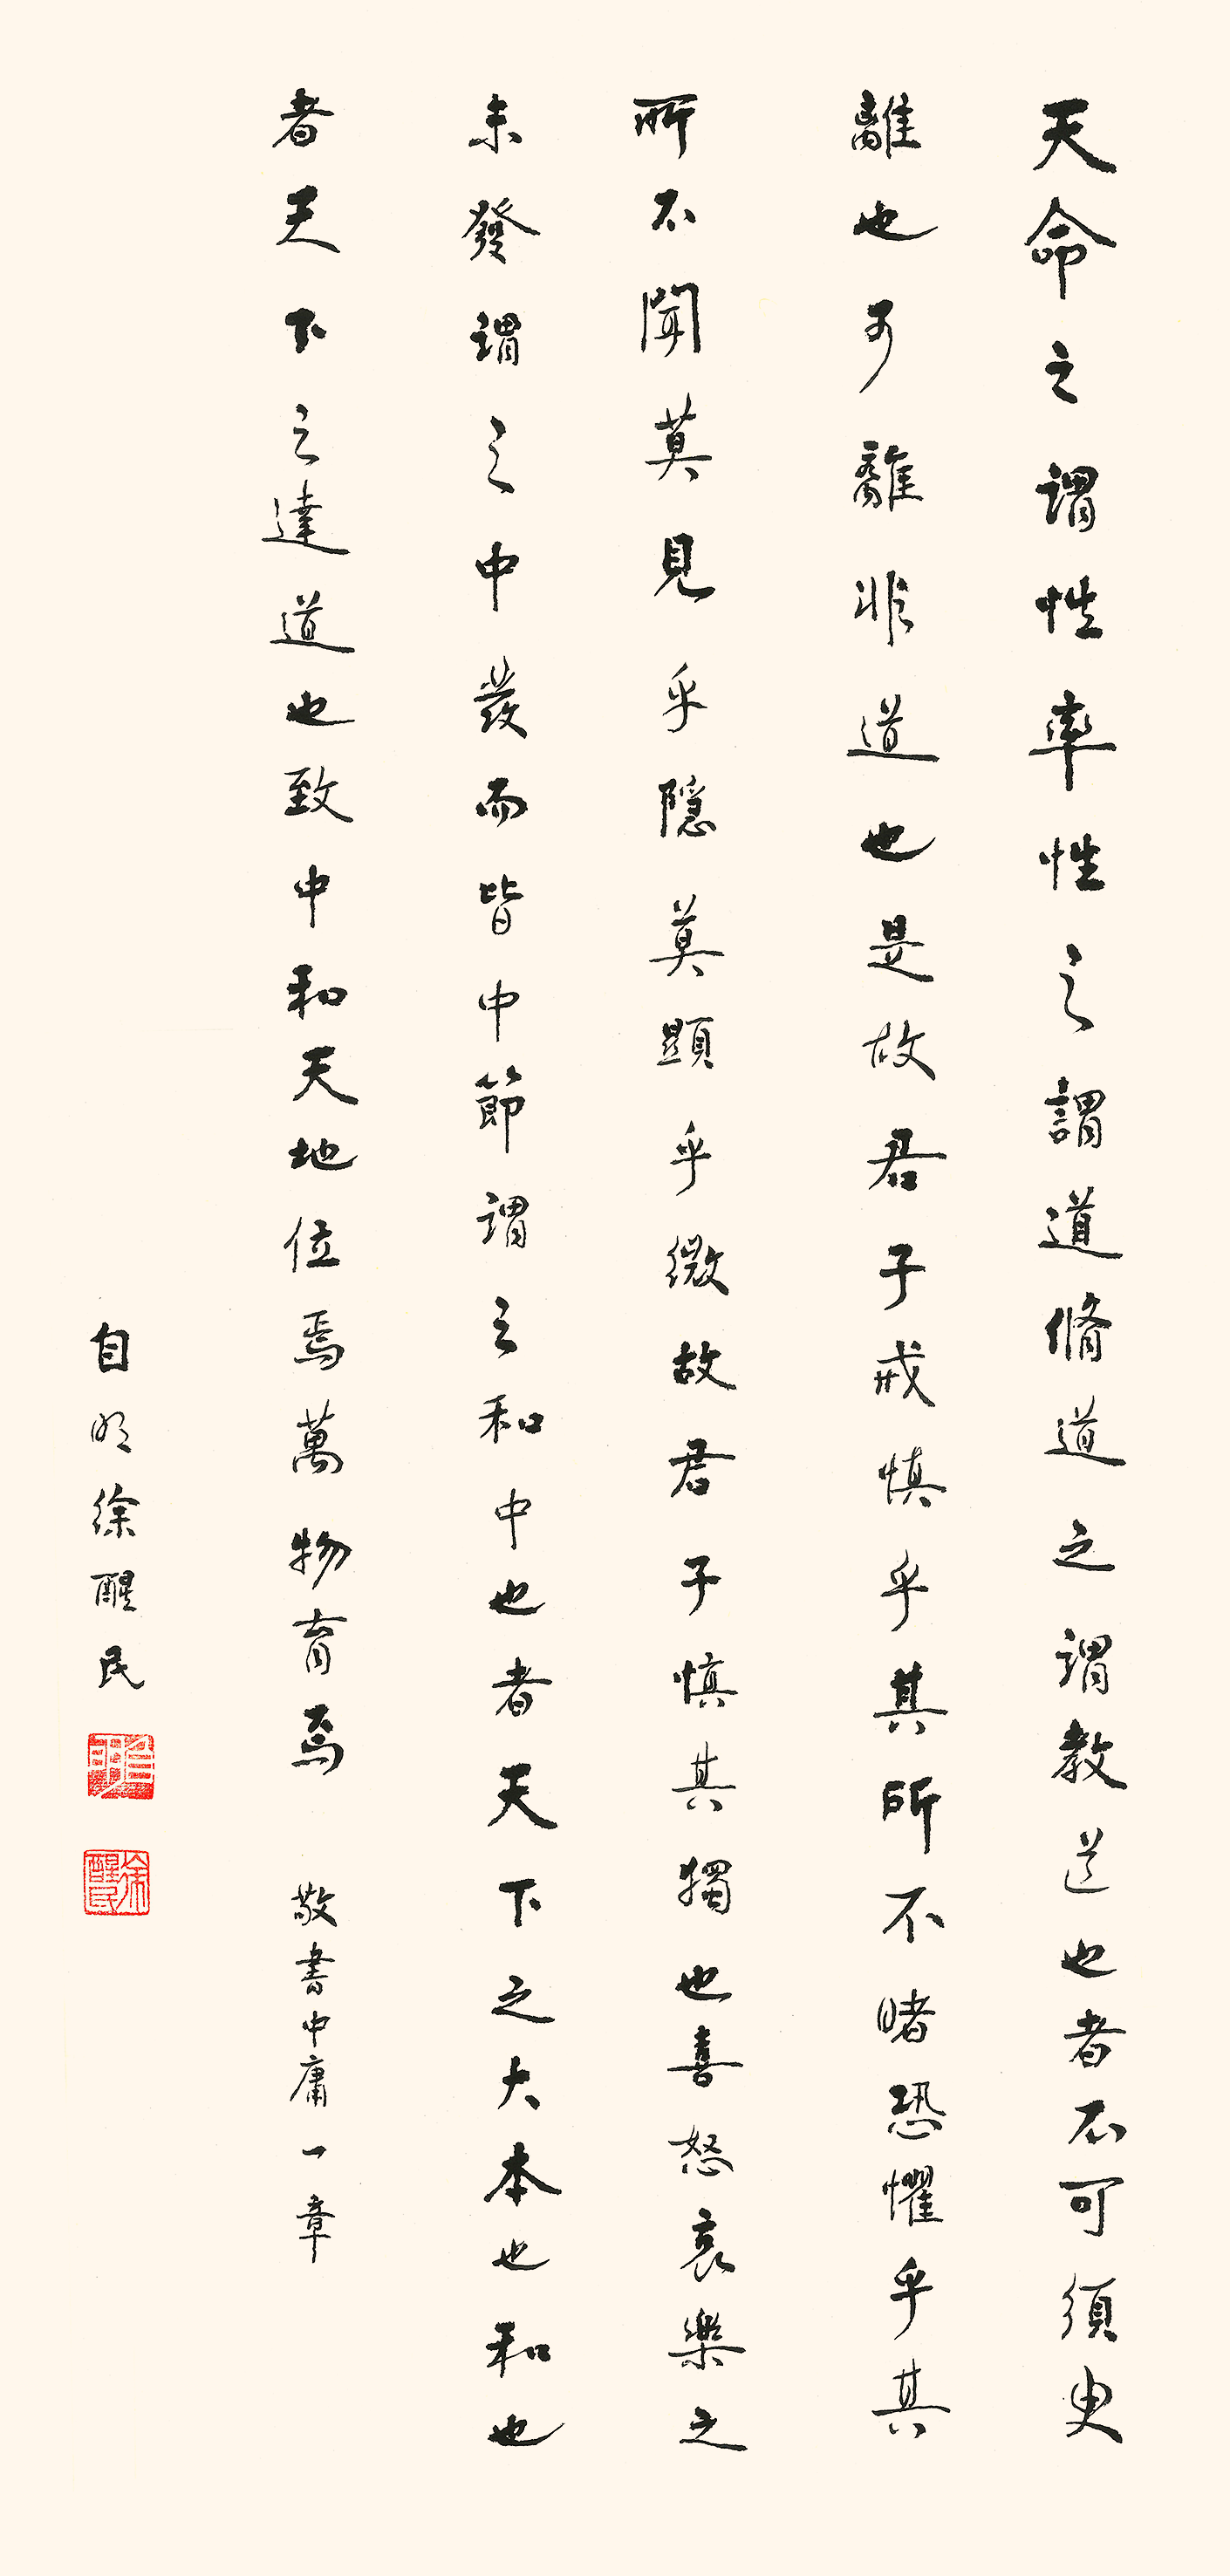 天命之謂性率性之謂道脩道之謂教道也者不可須臾
離也可離非道也是故君子戒慎乎其所不睹恐懼乎其
所不聞莫見乎隱莫顯乎微故君子慎其獨也喜怒哀樂之
未發謂之中發而皆中節謂之和中也者天下之大本也和也
者天下之達道也致中和天地位焉萬物育焉 敬書中庸一章
自明徐醒民
徐醒民